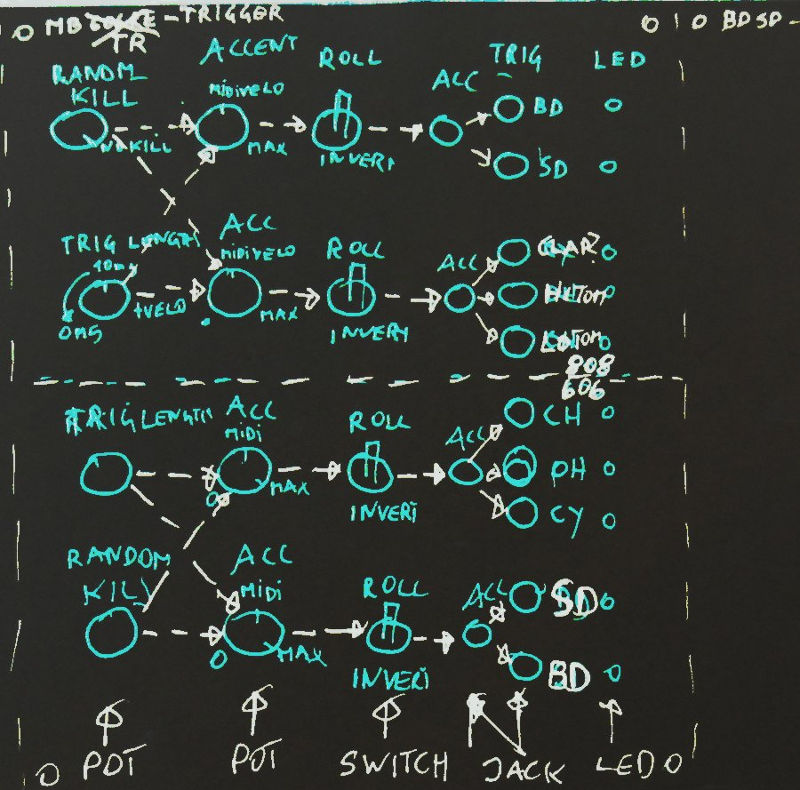 MB -TRIGGER
TR
BD SD -
RANDM KILL
ACCENT
MIDIVELO
ROLL
ACC
TRIG
LED
NOKILL
MAX
INVERI
BD
SD
TRIG LENGTH
10ms
+VELO
0MS
ACC
MIDIVELO
MAX
ROLL
INVERI
ACC
808
606
TRIG LENGTH
ACC
MIDI
0
MAX
ROLL
INVERI
ACC
CH
PH
CY
RANDOM
KILL
ACC
MIDI
0
MAX
ROLL
INVERI
ACC
SD
BD
POT
POT
SWITCH
JACK
LED